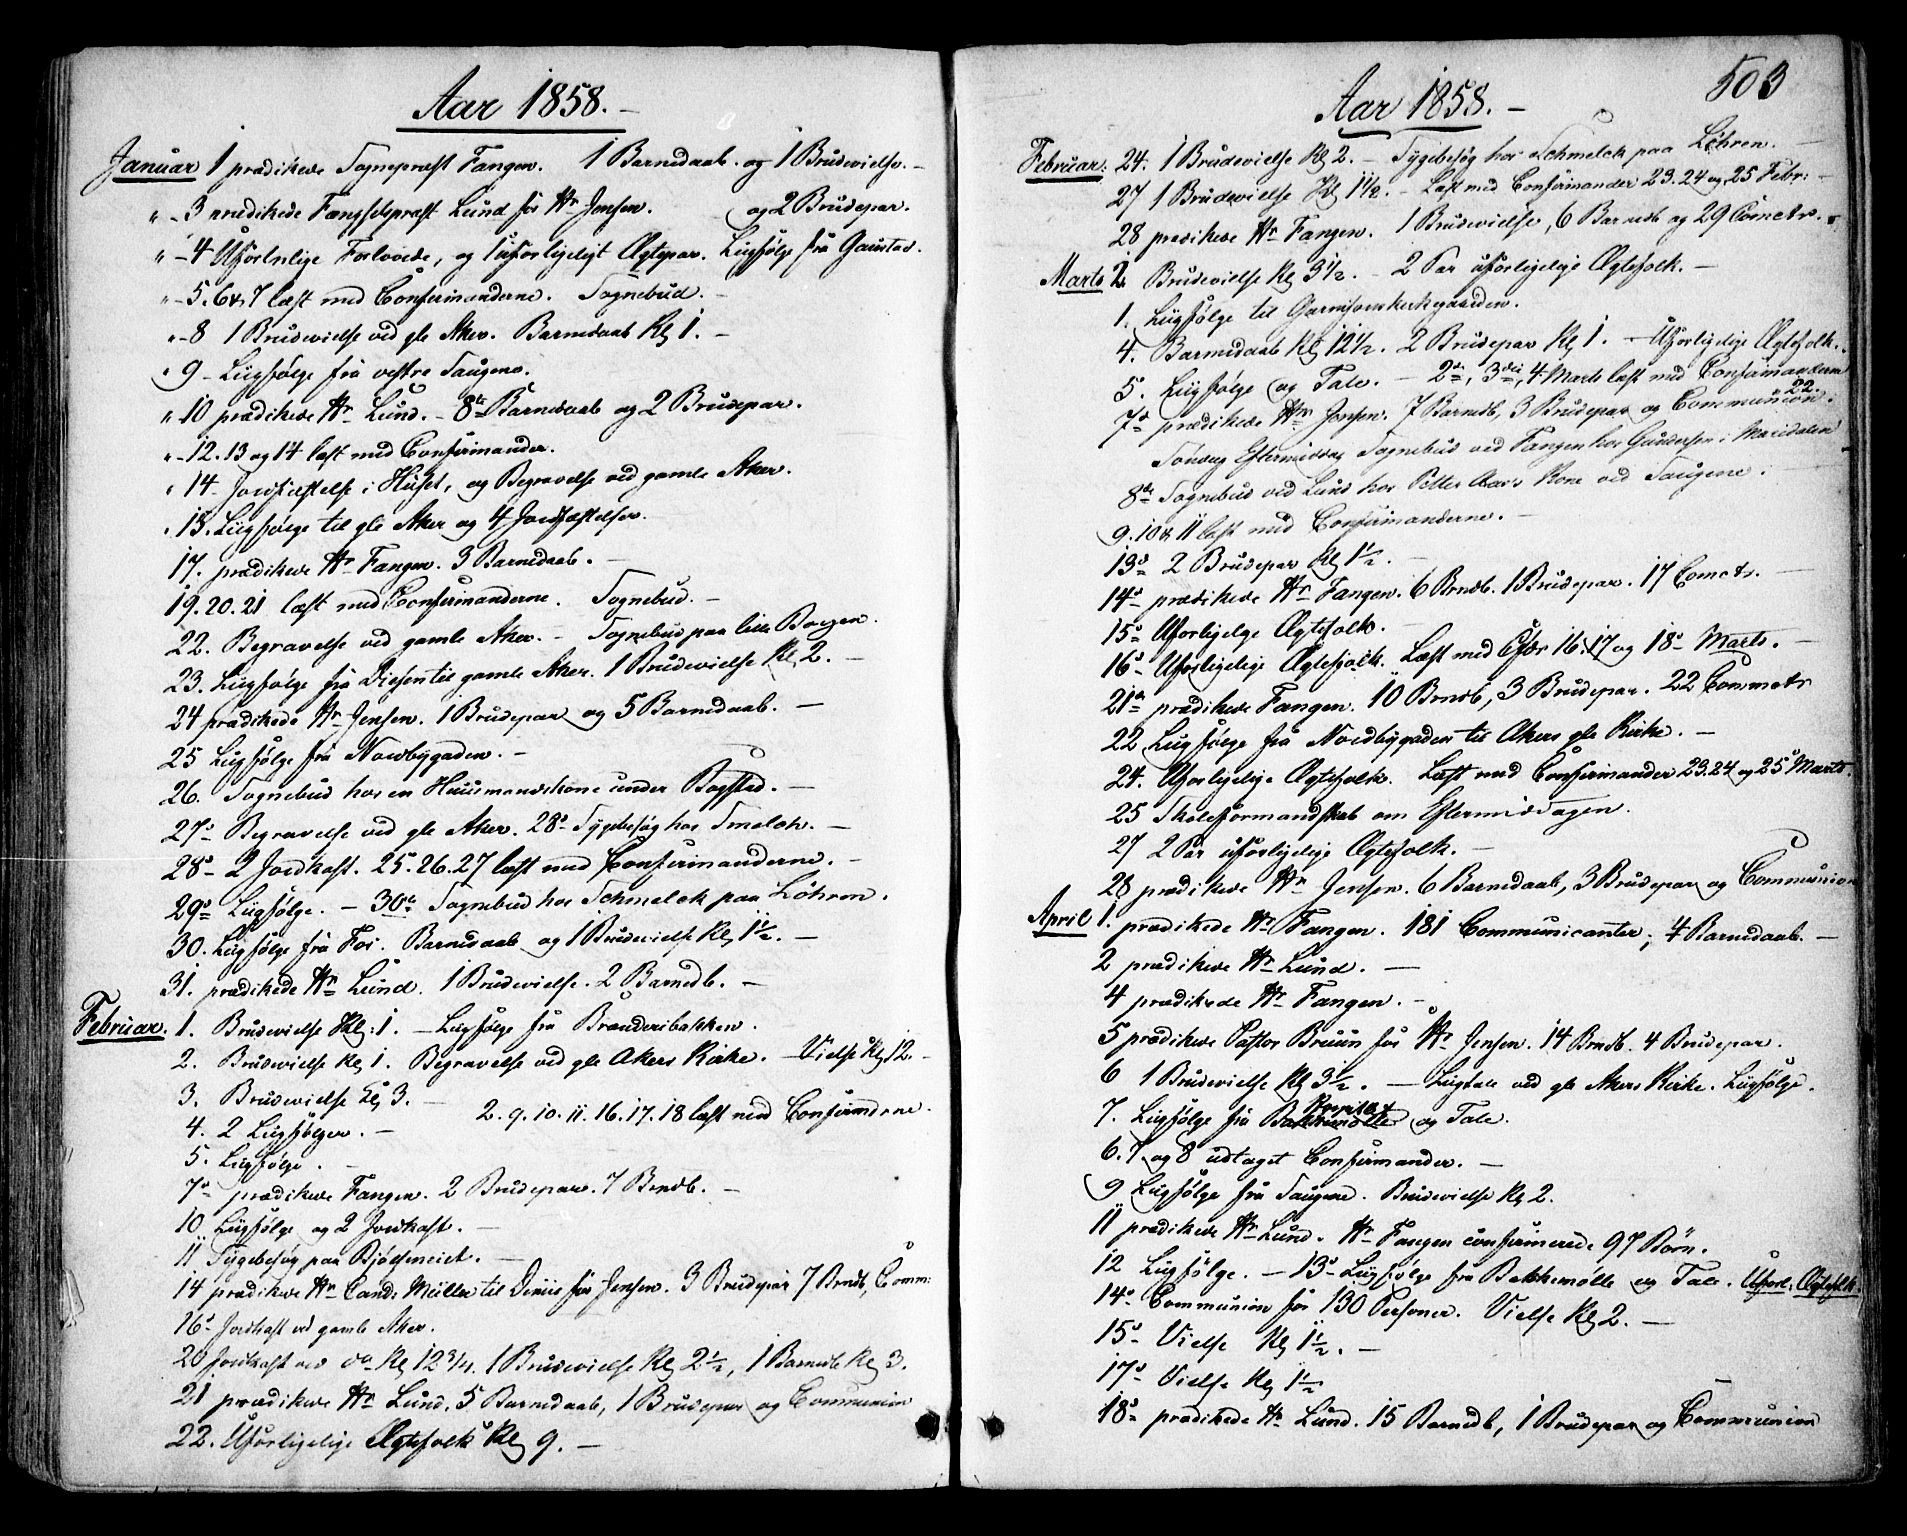 Aar 1858. –
Januar 1 prædikede Sognepræst Fangen. 1 Barnedaab. og 1 Brudevielse. –
" – 3 prædikede Fængselspræst Lund for Hr Jensen. og 2 Brudepar.
" – 4 Uforligelige Forlovede, og 1 uforligeligt Ægtepar. Liigfølge fra Gaustad.
" – 5. 6 & 7 læst med Confirmanderne. Sognebud. –
" – 8 1 Brudevielse ved gle Aker. Barnedaab Kl 1. –
" 9 – Liigfølge fra vestre Saugene.
" 10 prædikede Hr Lund. – 8te Barnedaab og 2 Brudepar.
" – 12. 13 og 14 læst med Confirmander.
" 14. Jordfæstelse i Huset, og Begravelse ved gamle Aker.
" 15. Liigfølge til gle Aker og 4 Jordfæstelser.
17. prædikede Hr Fangen. 3 Barnedaab. –
19. 20. 21 læst med Confirmanderne. Sognebud. –
22. Begravelse ved gamle Aker. – Sognebud paa lille Borgen.
23. Liigfølge fra Diesen til gamle Aker. 1 Brudevielse Kl 2. –
24 prædikede Hr Jensen. 1 Brudepar og 5 Barnedaab. –
25 Liigfølge fra Nordbygaden. –
26. Sognebud hos en Huusmandskone under Bogstad. –
27de Begravelse ved gle Aker. 28de Sygebesøg hos Smelck. –
28de 2 Jordkast. 25. 26. 27 læst med Confirmanderne. –
29de Liigfølge. – 30te Sognebud hos Schmelck paa Løhren.
30. Liigfølge fra Foi. Barnedaab og 1 Brudevielse Kl 1 1/2. –
31. prædikede Hr Lund. 1 Brudevielse. 2 Barnedb. –
Februar. 1. Brudevielse Kl: 1. – Liigfølge fra Brænderibakken.
2. Brudevielse Kl 1. Begravelse ved gle Akers Kirke. – Vielse Kl 12. –
3. Brudevielse Kl 3. –
2. 9. 10. 11. 16. 17. 18 læst med Confirmderne.
4. 2 Liigfølger. –
5. Liigfølge. –
7de prædikede Fangen. 2 Brudepar. 7 Brndb. –
10 Liigfølge og 2 Jordkast. –
11 Sygebesøg paa Bjølseneiet. –
14 prædikede Hr Cand: Müller til Dimis for Jensen. 3 Brudepar 7 Brndb, Comm:
16de Jordkast ved gamle Aker.
20 Jordkast ved do Kl 12 3/4. 1 Brudevielse Kl 2 1/2, 1 Barnedb Kl 3.
21 prædikede Hr Lund, 5 Barnedaab, 1 Brudepar og Communion
22. Uforligelige Ægtefolk Kl 9. –
503
Aar 1858. –
Februar: 24. 1 Brudevielse Kl 2. – Sygebesøg hos Schmelck paa Løhren. –
27 1 Brudevielse Kl 1 1/2. – Læst med Confirmander 23. 24 og 25 Febr: –
28 prædikede Hr Fangen. 1 Brudevielse, 6 Barnedb og 29 Comcts.
Marts 1. Brudevielse Kl 3 1/2. – 2 Par uforligelige Ægtefolk. –
1. Liigfølge til Garnisonskirkegaarden.
4. Barnedaab Kl 12 1/2. 2 Brudepar Kl 1. – Uforligelige Ægtefolk.
5. Liigfølge og Tale. – 2de, 3die, 4 Marts læst med Confirmanderne
7de prædikede Hr Jensen. 7 Barnedb, 3 Brudepar og Communion. 22.
Søndag Eftermiddag Sognebud ved Fangen hos Gundersen i Maridalen
8de Sognebud ved Lund hos Petter Aas's Kone ved Saugene.
9. 10 & 11 læst med Confirmanderne. –
13de 2 Brudepar Kl 1 1/2. –
14de prædikede Hr Fangen. 6 Brndb. 1 Brudepar. 17 Comcts. –
15de Uforligelge Ægtefolk. –
16de Uforligelige Ægtefolk. Læst med Cfder 16. 17 og 18de Marts. –
21de prædikede Fangen. 10 Brndb, 3 Brudepar. 22 Commcts
22 Liigfølge fra Nordbygaden til Akers gle Kirke. –
24. Uforligelige Ægtefolk. Læst med Confirmander 23. 24 og 25 Marts.
25 Skoleformandskab om Eftermiddagen.
27 2 Par uforligelige Ægtefolk. –
28 prædikede Hr Jensen. 6 Barnedaab, 3 Brudepar og Communion
April 1. prædikede Hr Fangen. 181 Communicanter, 4 Barnedaab. –
2 prædikede Hr Lund. –
4 prædikede Hr Fangen. –
5 prædikede Pastor Bruun for Hr Jensen. 14 Brndb. 4 Brudepar.
6 1 Brudevielse Kl 3 1/2. – Liigtale ved gle Akers Kirke. Liigfølge.
7. Liigfølge fra og Tale.
6. 7 og 8 udtaget Confirmander. –
9 Liigfølge fra Saugene. Brudevielse Kl 2.
11 prædikede Hr Lund. Hr Fangen confirmerede 97 Børn.
12 Liigfølge. – 13de Liigfølge fra Bakkemølle og Tale. Uforl. Ægtefolk.
14de Communion for 130 Personer. Vielse Kl 2. –
15de Vielse Kl 1 1/2. –
17de Vielse Kl 1 1/2
18de prædikede Hr Lund. 15 Barnedb, 1 Brudepar og Communion